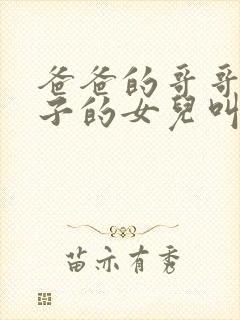 爸爸的哥哥
子的女兒叫
苗亦有秀